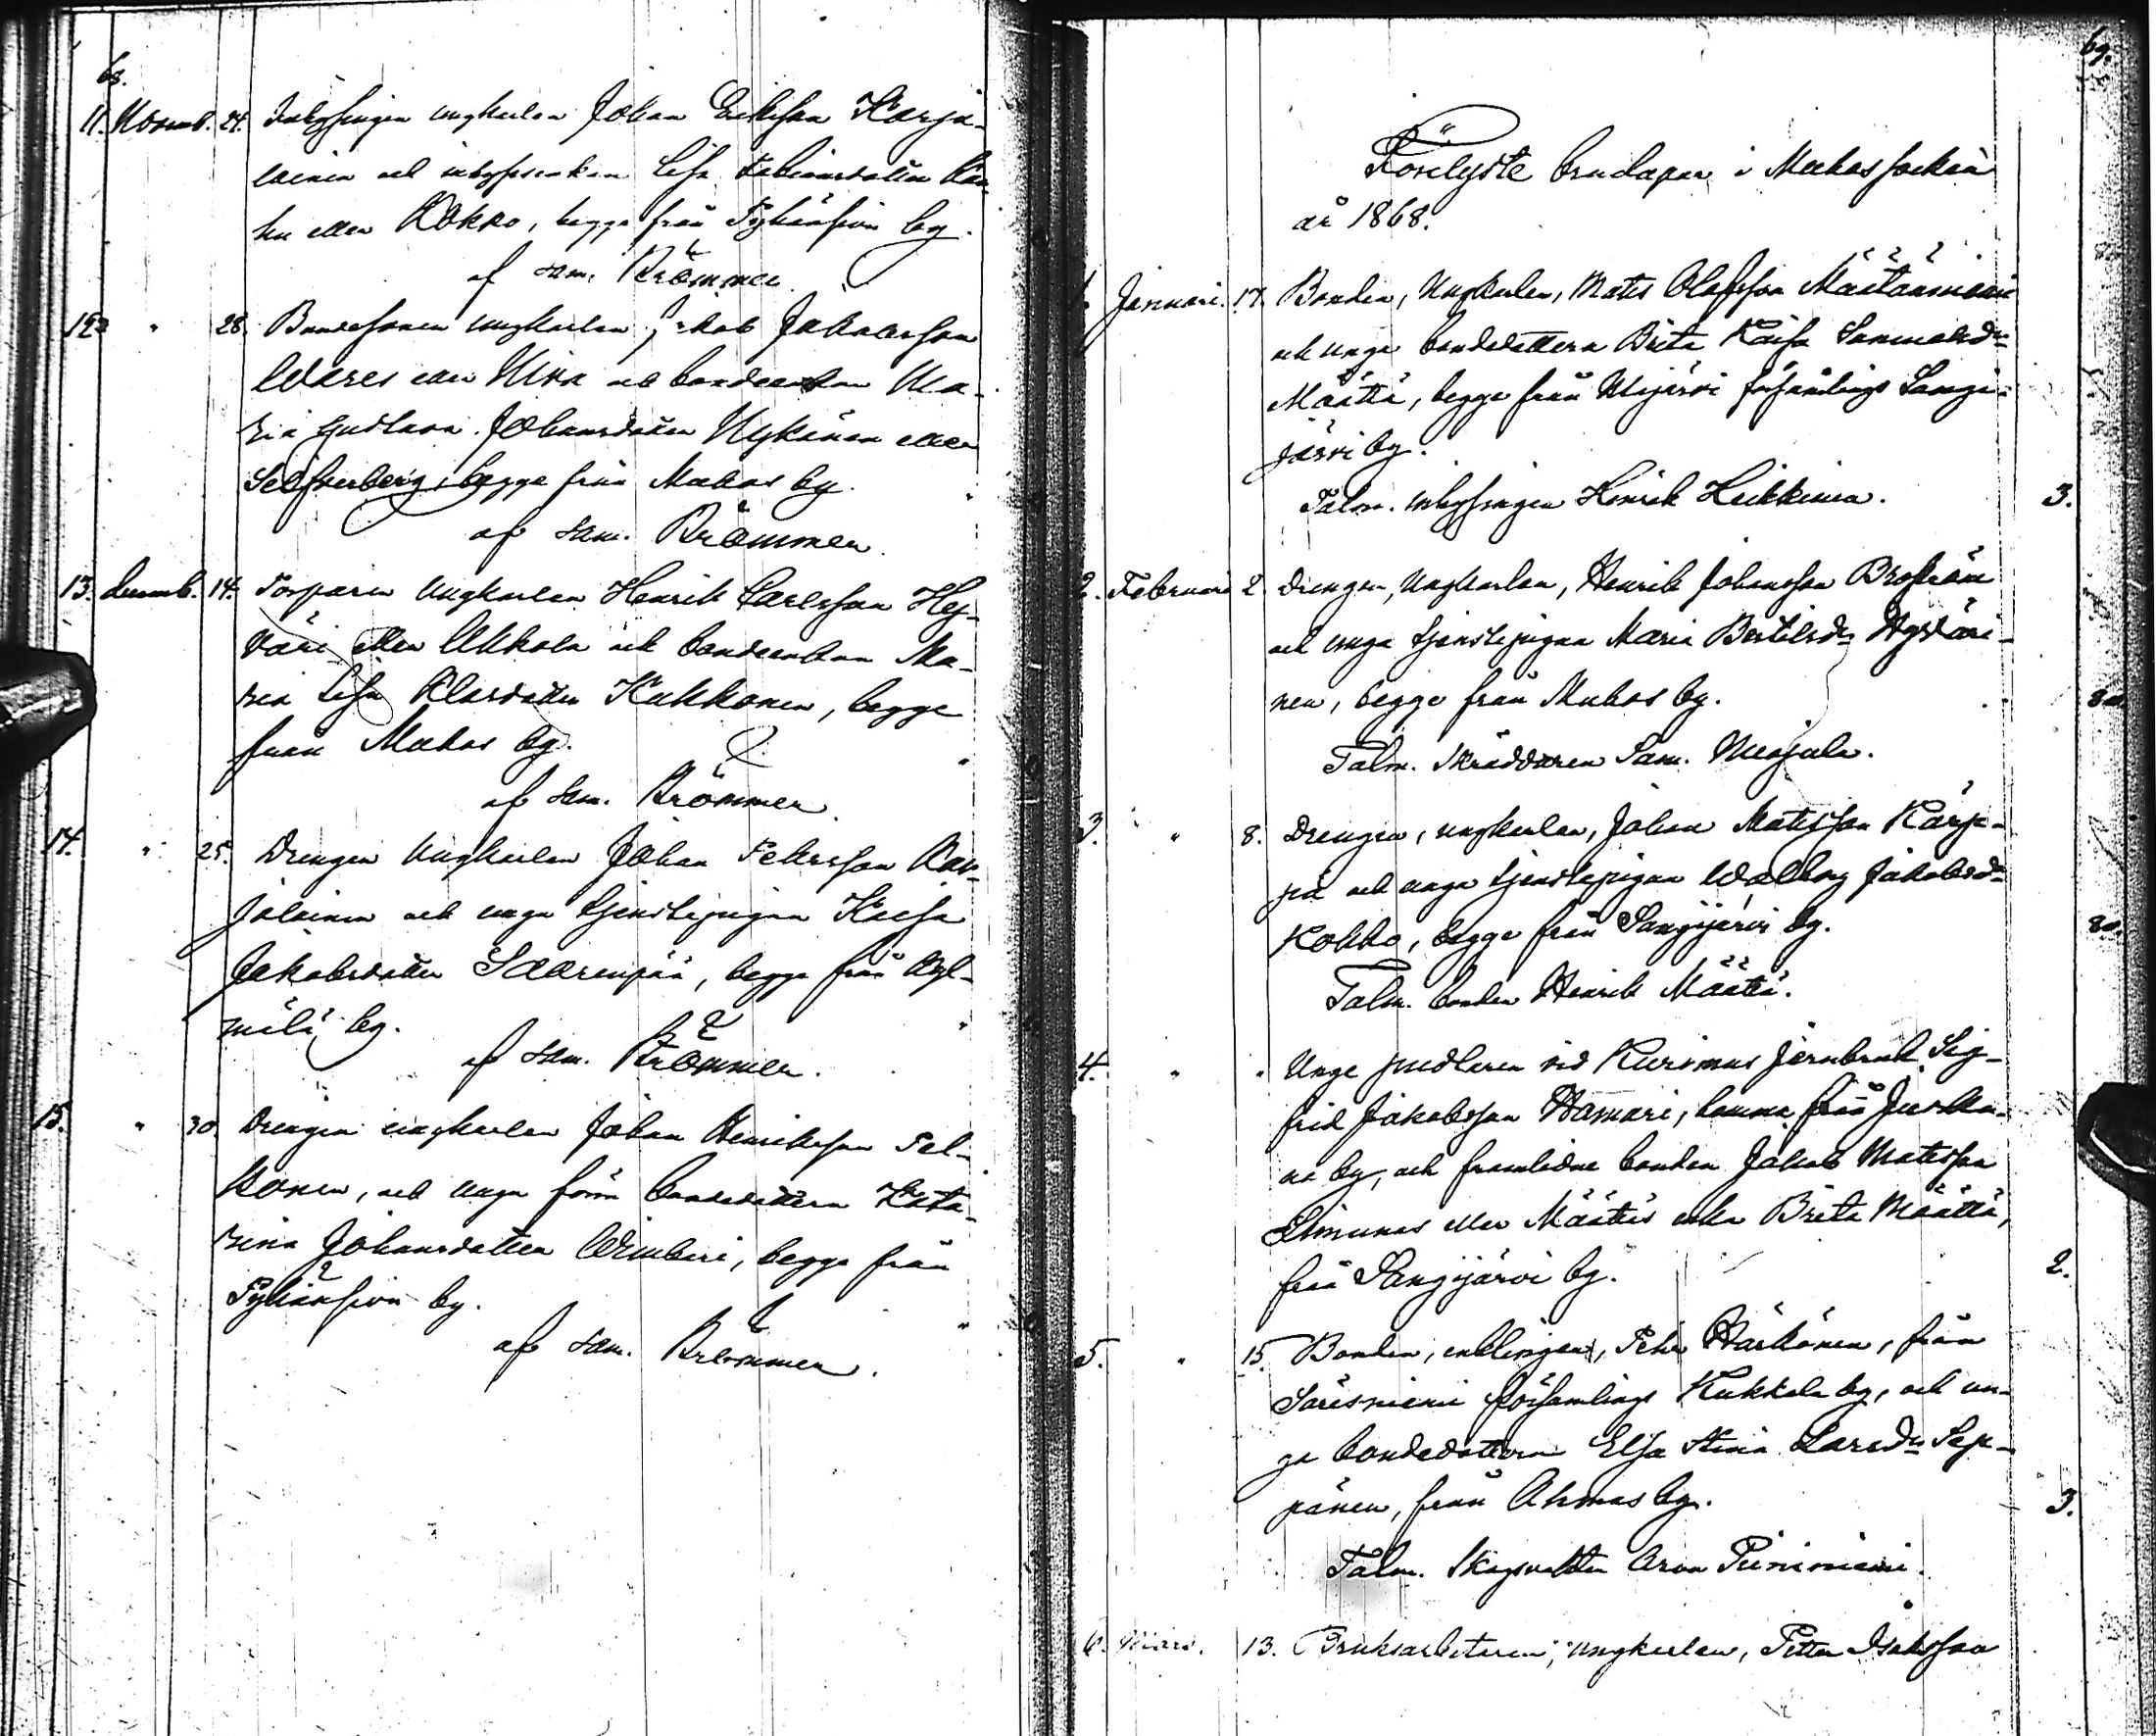 68.
11. Novemb. 24. Inhysingen ungkarlen Johan Eriksson Karja-
lainen och inhysesenkan Lisa Fabiansdotter
eller Kokko, begge från Pyhänsivu by.
af Sam. Krömmer.
12. " 28. Bondesonen ungkarlen Jakob Jakobsson
Wares eller och bondeenkan Ma-
ria Gustava Johansdotter Nykänen eller
Selfverberg, begge från Muhos by.
af Sam. Krömmer.
13. Decemb. 14. Torparen Ungkarlen Henrik Carlsson Hey-
väri eller Ukkola och bondeenkan Ma-
ria Lisa Klasdotter Kukkonen, begge
från Muhos by.
af Sam. Krömmer.
14. " 25. Drengen Ungkarlen Johan Petersson Kar-
jalainen och unga tjenstepigan Kaisa
Jakobsdotter Saarenpää, begge från Kyl-
mälä by.
af Sam. Krömmer.
15. " 30. Drengen ungkarlen Johan Henriksson Pel-
konen, och unga förra bondedottern Kata-
rina Johansdotter Wimberi, begge från
Pyhänsivu by.
af Sam. Krömmer.
69.
Förelyste brudapar i Muhos socken
år 1868.
1. Januari. 17. Bonden, Ungkarlen, Mats Olofsson Määttänniemi
och unga bondedottern Brita Kaisa Samuelsdr
Määttä, begge från Utajärvi församlings Sangi-
järvi by.
Talm. inhysingen Henrik Heikkinen. 3.
2. Februari 2. Drengen, Ungkarlen, Henrik Johansson Broström
och unga tjenstepigan Maria Bertilsdr
nen, begge från Muhos by. 80.
Talm. Skräddaren Sam. Mujala.
3. " 8. Drengen, ungkarlen, Johan Matsson Kärp-
pä och unga tjenstepigan Walborg Jakobsdr
Kokko, begge från Sangijärvi by. 80.
Talm. bonden Henrik Määttä.
4. " " Unge pudlaren vid Kurimus jernbruk Sig-
frid Jakobsson Hamari, hemma från
na by, och framlidne bonden Jakob Matsson
Simunas eller Määttäs enka Brita Määttä,
från Sangijärvi by. 2.
5. " 15. Bonden, enklingen, Petr Härkönen, från
Säresniemi församlings Kukkola by, och un-
ga bondedottern Elsa Stina Larsdr Sep-
pänen, från Ahmas by. 3.
Talm. Skogsvakten Aron Piiriniemi.
6. Mars. 13. Bruksarbetaren, ungkarlen, Petter Isaksson